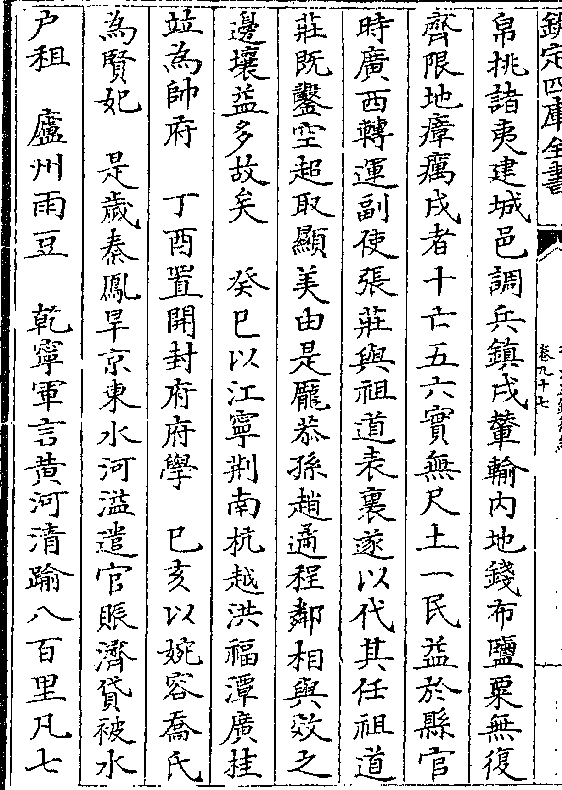 欽定四庫全書
卷九十七
帛挑諸夷建城邑調兵鎮戍輦輸內地錢布鹽粟無復
齊限地瘴癘戍者十亡五六實無尺土一民益於縣官
時廣西轉運副使張莊與祖道表裏遂以代其任祖道
莊既鑿空超取顯美由是龐恭孫趙遹程鄰相與效之
邊壤益多故矣　癸巳以江寧荆南杭越洪福潭廣桂
竝為帥府　丁酉置開封府府學　己亥以婉容喬氏
為賢妃　是歲秦鳳旱京東水河溢遣官賬濟貸被水
户租　廬州雨豆　乾寧軍言黄河清踰八百里凡七